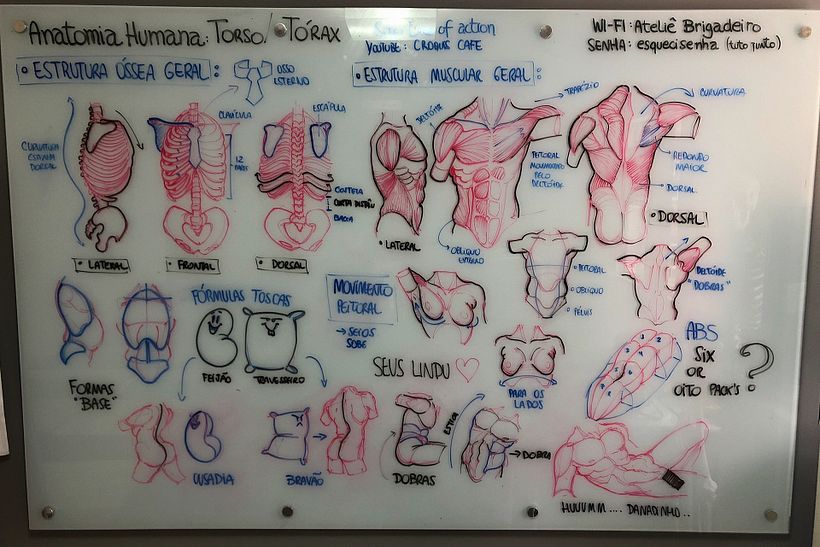 Anatomia Humana: TORSO/TÓRAX
of action
YOUTUBE: CROQUIS CAFE
WI-FI: Ateliê Brigadeiro
SENHA: esquecisenha (tudo junto)
• ESTRUTURA ÓSSEA GERAL:
OSSO
ESTERNO
• ESTRUTURA MUSCULAR GERAL:
CLAVÍCULA
ESCÁPULA
DELTÓIDE
TRAPÉZIO
CURVATURA
CURVATURA
DORSAL
12
PARES
PEITORAL
MOVIMENTADO
PELO
DELTÓIDE
REDONDO
MAIOR
DORSAL
COSTELA
BACIA
• LATERAL
• FRONTAL
• DORSAL
• LATERAL
OBLIQUO
EXTERNO
• DORSAL
• PEITORAL
• OBLIQUO
• PÉLVIS
DELTÓIDE
"DOBRAS"
FÓRMULAS TOSCAS
MOVIMENTO
PEITORAL
→ SEIOS
SOBE
FEIJÃO
TRAVESSEIRO
SEUS LINDU ♡
PARA OS
LADOS
ABS
SIX
OR
OITO PACK'S ?
1 2 3 4 5 6
FORMAS
"BASE"
OUSADIA
BRAVÃO
DOBRAS
ESTICA
→ DOBRA
HUUUMM.... DANADINHO..